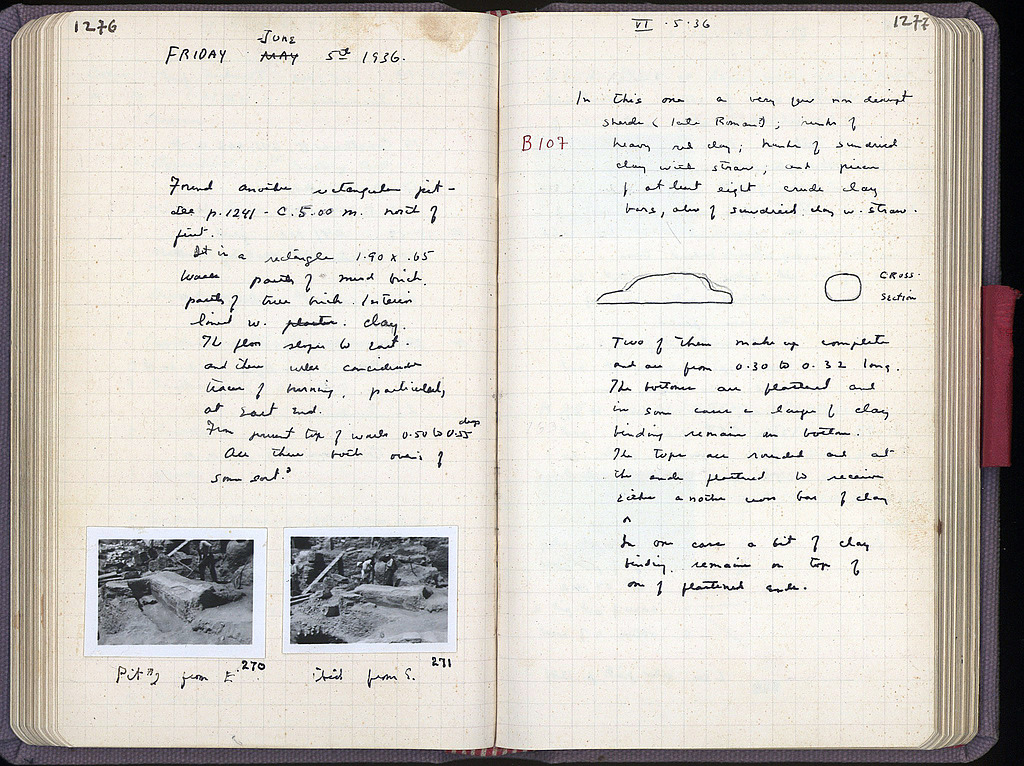 1276
JUNE
FRIDAY MAY 5th 1936.
Found another rectangular pit -
see p. 1241 - c. 5.00 m. north of
first.
It is a rectangle 1.90 x .65
Walls partly of mud brick,
partly of true brick. Interior
lined w. plaster. clay.
The floor slopes to East.
and there were considerable
traces of burning, particularly
at East end.
From present top of walls 0.50 to 0.55 deep
Are these both ovens of
some sort?
Pit from E. 270
Ibid from S. 271
VI . 5 . 36
1277
In this one a very few non descript
sherds (late Roman?); hunks of
B107
heavy red clay; hunks of sundried
clay with straw; and pieces
of at least eight crude clay
bars, also of sundried clay w. straw.
CROSS-
Section
Two of them make up complete
and are from 0.30 to 0.32 long.
The bottoms are flattened and
in some cases a large of clay
binding remains on bottom.
The tops are rounded and at
the ends flattened to receive
either another cross bar of clay
or
In one case a bit of clay
binding remains on top of
one of flattened ends.